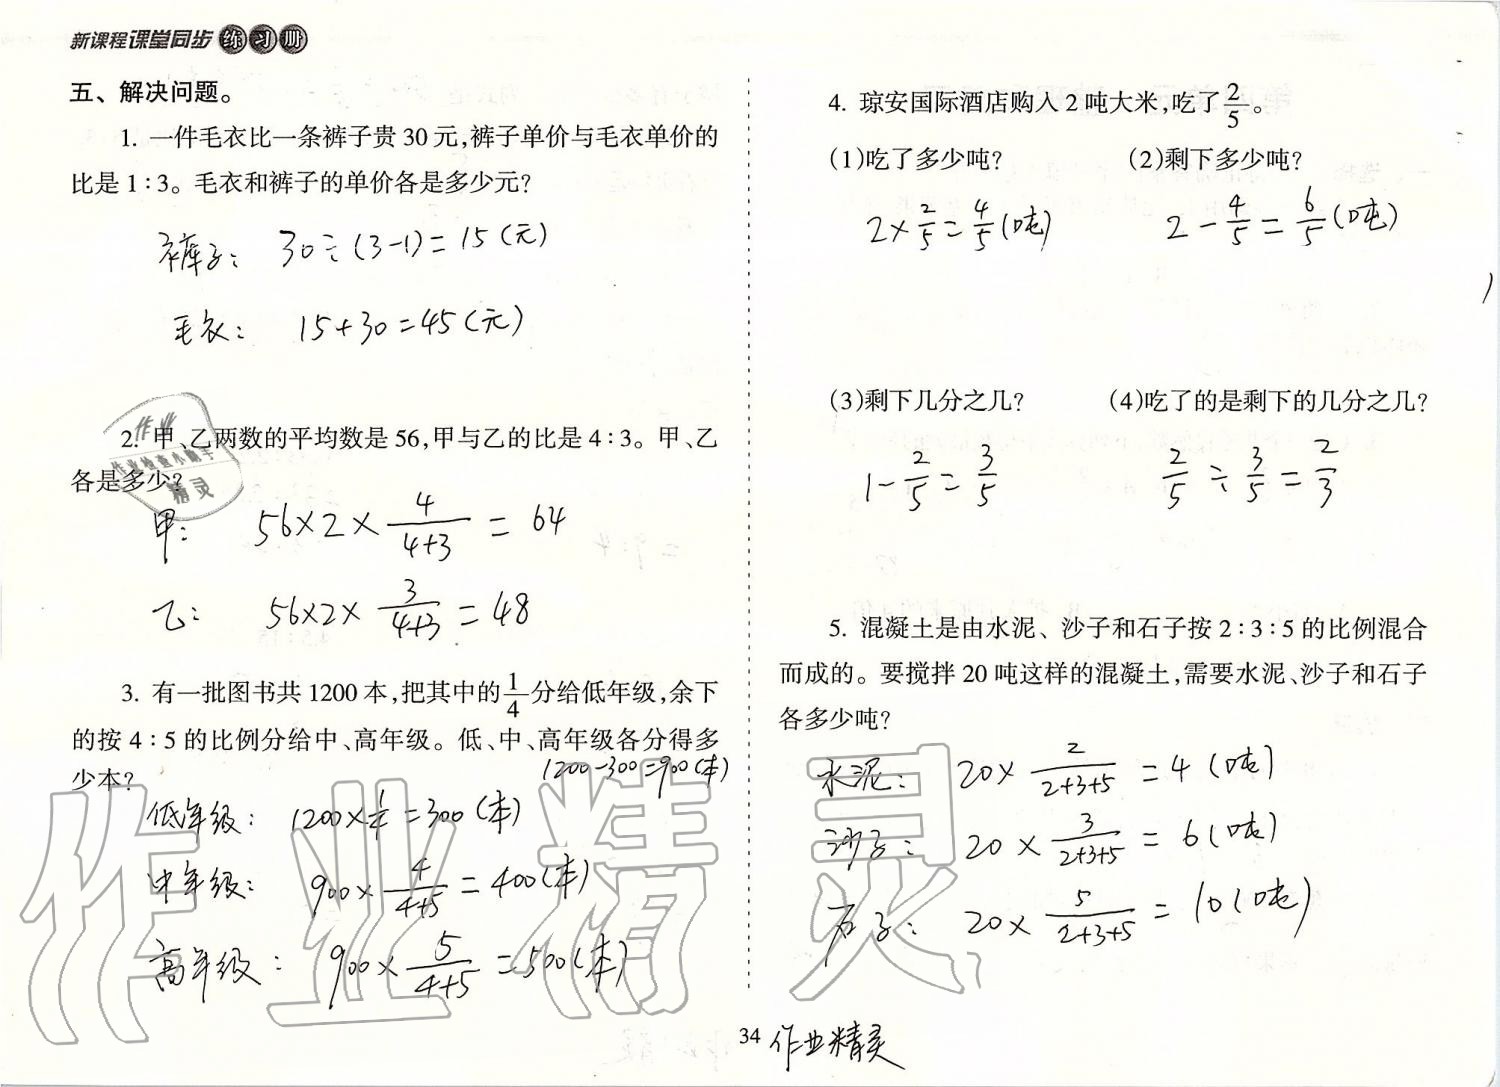 新课程课堂同步练习册
五、解决问题。
1. 一件毛衣比一条裤子贵30元,裤子单价与毛衣单价的
比是1∶3。毛衣和裤子的单价各是多少元?
裤子: 30÷(3-1)=15(元)
毛衣: 15+30=45(元)
2. 甲、乙两数的平均数是56,甲与乙的比是4∶3。甲、乙
各是多少?
甲: 56×2×4/(4+3)=64
乙: 56×2×3/(4+3)=48
3. 有一批图书共1200本,把其中的1/4分给低年级,余下
的按4∶5的比例分给中、高年级。低、中、高年级各分得多
少本?
1200-300=900(本)
低年级: 1200×1/4=300(本)
中年级: 900×4/(4+5)=400(本)
高年级: 900×5/(4+5)=500(本)
4. 琼安国际酒店购入2吨大米,吃了2/5。
(1)吃了多少吨? (2)剩下多少吨?
2×2/5=4/5(吨) 2-4/5=6/5(吨)
(3)剩下几分之几? (4)吃了的是剩下的几分之几?
1-2/5=3/5 2/5÷3/5=2/3
5. 混凝土是由水泥、沙子和石子按2∶3∶5的比例混合
而成的。要搅拌20吨这样的混凝土,需要水泥、沙子和石子
各多少吨?
水泥: 20×2/(2+3+5)=4(吨)
沙子: 20×3/(2+3+5)=6(吨)
石子: 20×5/(2+3+5)=10(吨)
34
作业精灵
作业
作业检查小帮手
精灵
作业精灵